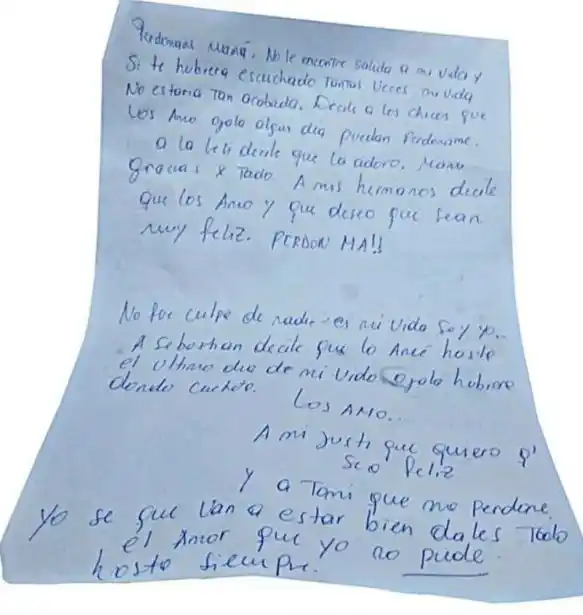 Perdoname Mamá. No le encontre salida a mi vida y
Si te hubiera escuchado Tantas Veces mi vida
No estaria Tan acabada. Decile a los chicos que
Los Amo ojala algun dia puedan Perdoname.
a la Leti decile que la adoro. Mama
gracias x Todo A mis hermanos decile
que los Amo y que deseo que sean
muy feliz. PERDON MA!!
No fue culpa de nadie es mi Vida Soy yo..
A Sebasthan decile que lo Amé hasta
el ultimo dia de mi Vida ojala hubiera
Los AMO...
A mi Justi que quiero q'
Sea Feliz
Y a Tami que me perdone
Yo se que Van a estar bien dales Todo
el Amor que yo no pude
hasta siempre.